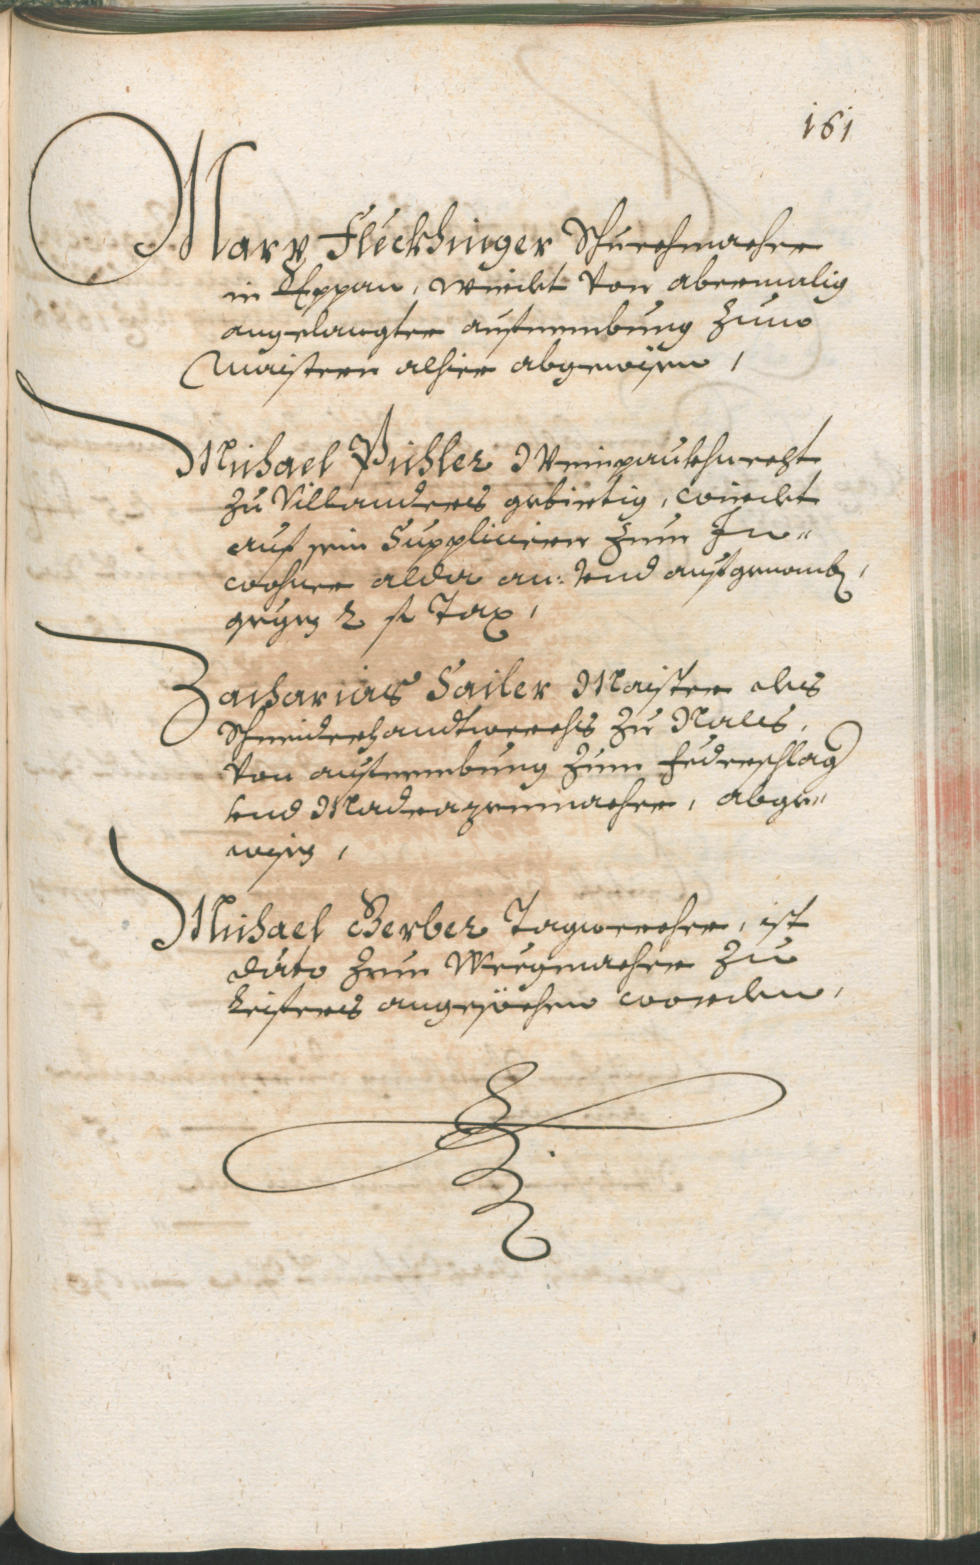 161
Marx Fleckhinger Schuechmacher
in Eppan, wirdet von abermalig
angelangter aufnembung zum
Maistern alhier abgewisen,
Michael Pichler Weinpaukhnecht
zu Villanders gebirtig, wirdet
auf sein Suppliciern zum In„
wohner alda an: und aufgenomben,
gegen 2 fl Tax,
Zacharias Sailer Maister des
Schneiderhandtwerchs zu Nals,
von aufnembung zum Federschlag
und Maderazenmacher, abge„
wisen,
Michael Gerber Tagwercher, ist
dato zum Weegmacher zu
Leifers angesöchen worden,